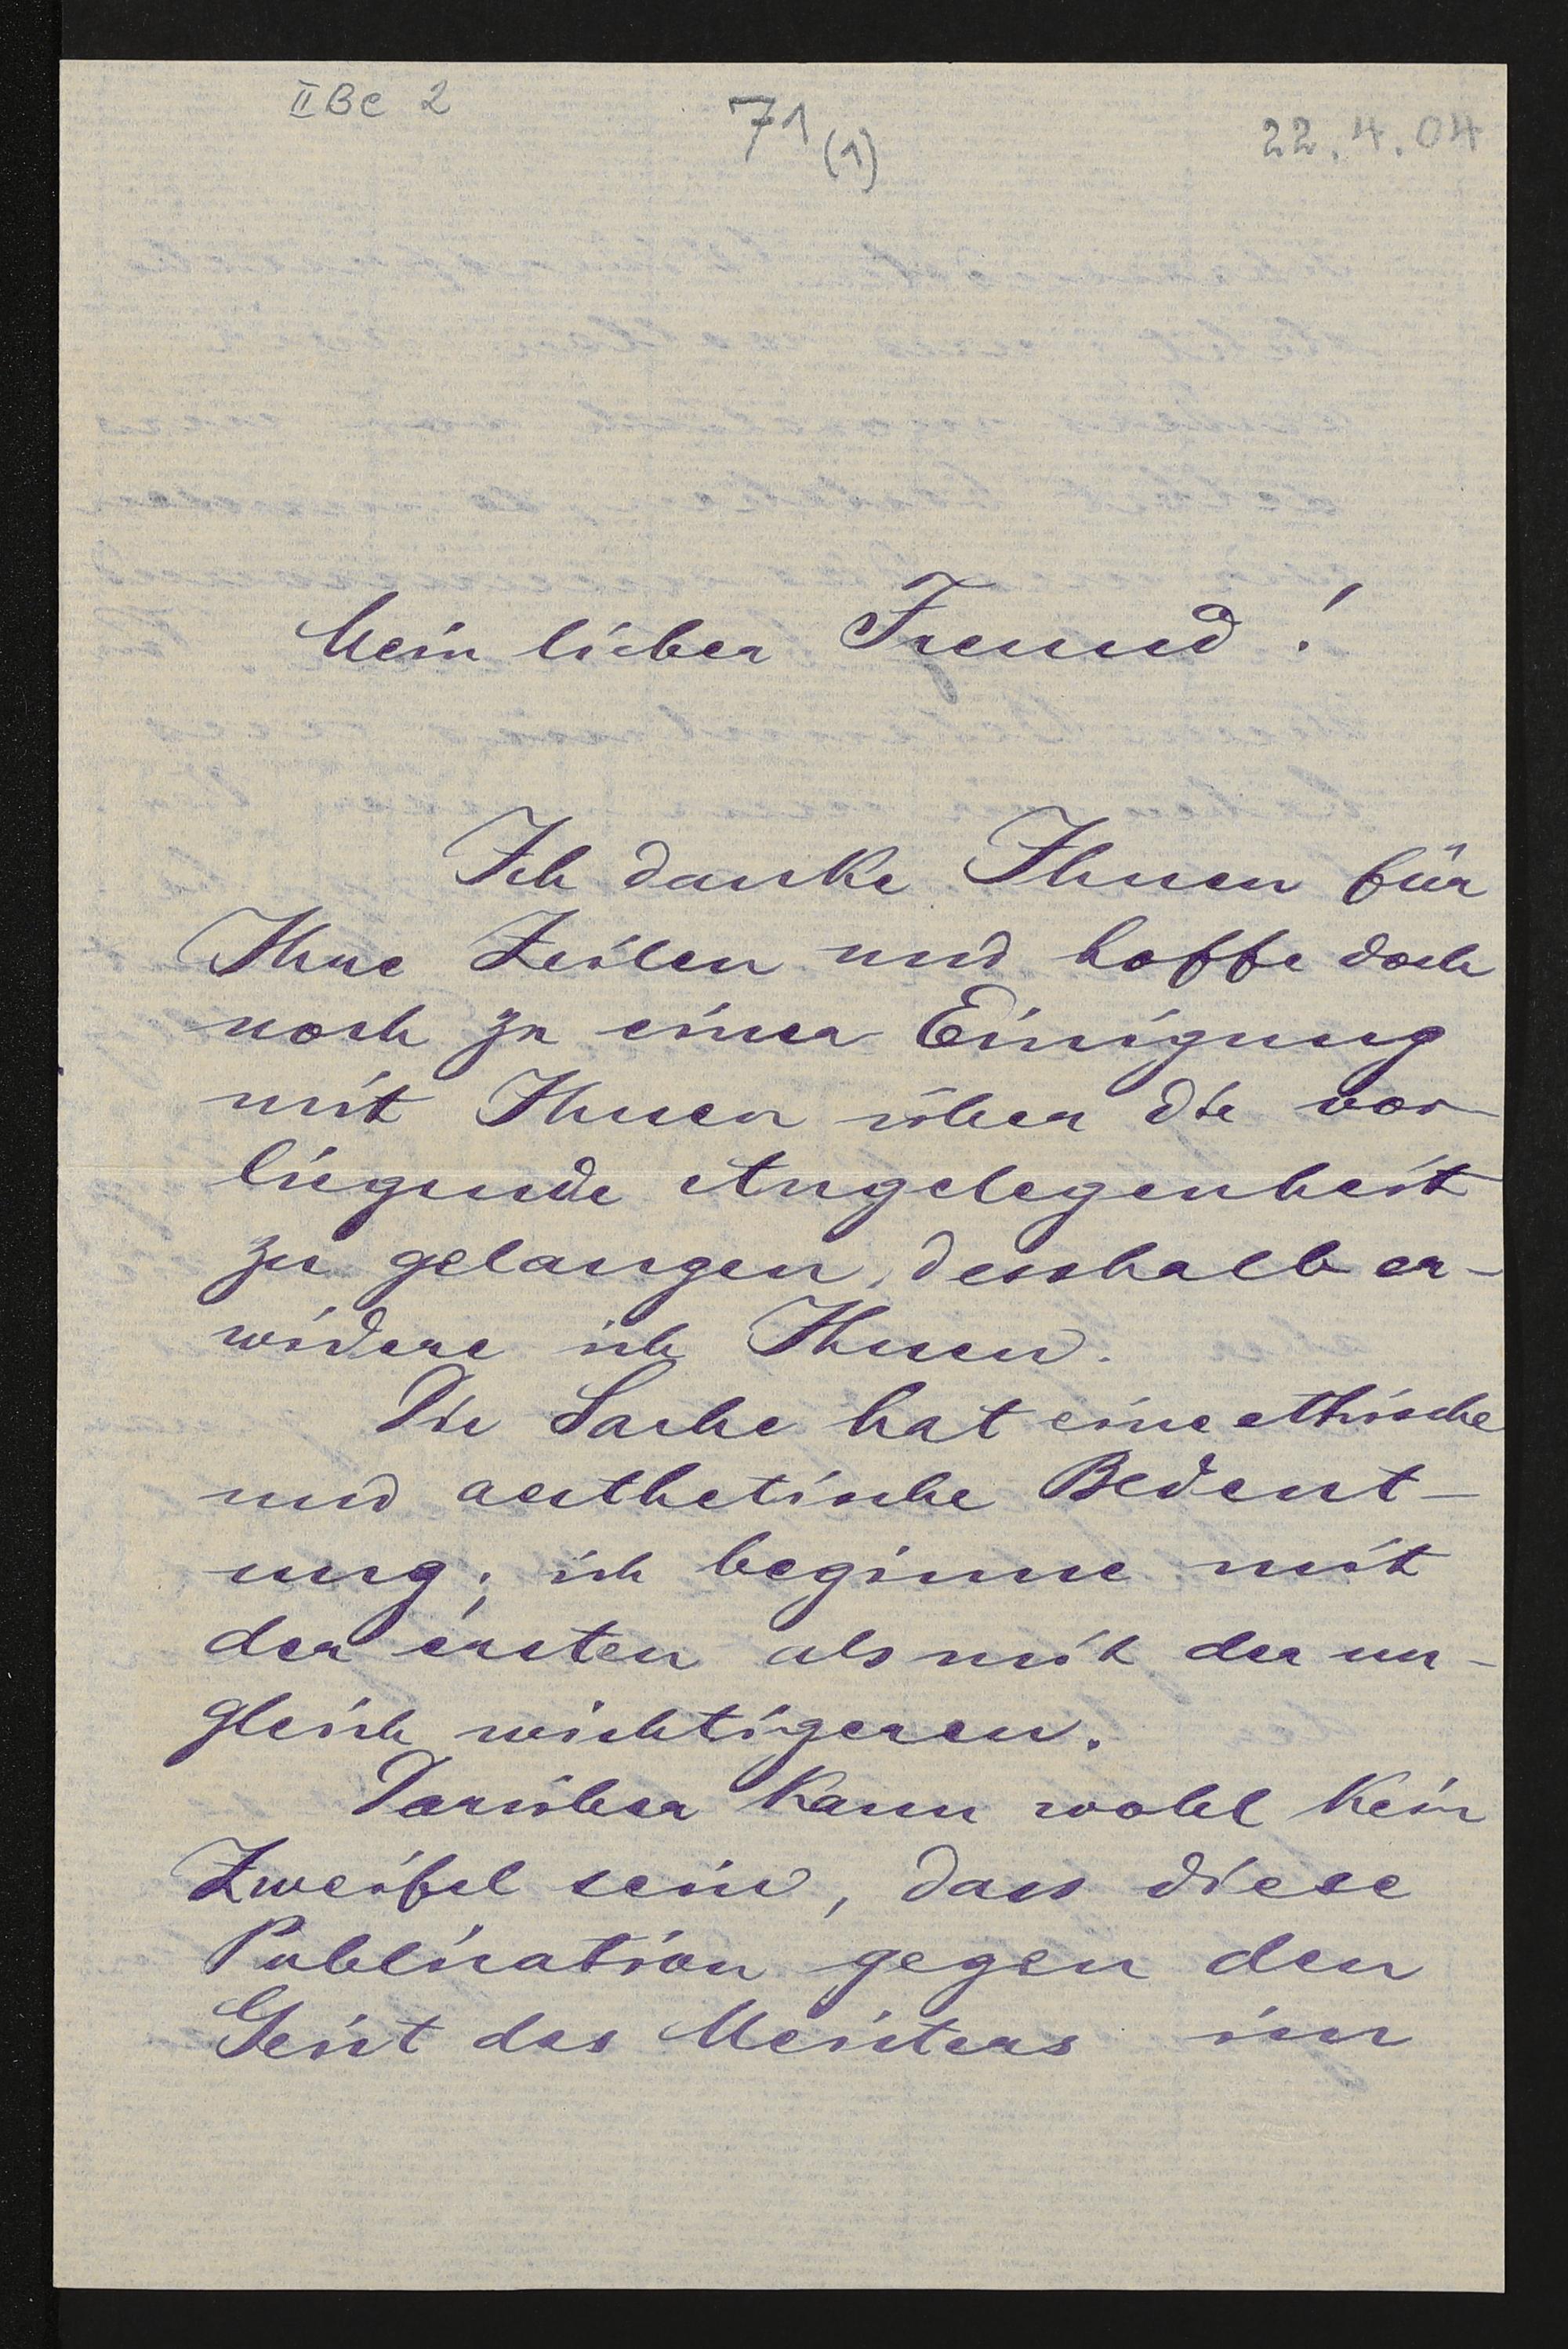 II Be 2
71 (1)
22.4.04
Mein lieber Freund!
Ich danke Ihnen für
Ihre Zeilen und hoffe doch
noch zu einer Einigung
mit Ihnen über die vor-
liegende Angelegenheit
zu gelangen, desshalb er-
widere ich Ihnen.
Die Sache hat eine ethische
und aesthetische Bedeut-
ung; ich beginne mit
der ersten als mit der un-
gleich wichtigeren.
Darüber kann wohl kein
Zweifel sein, dass diese
Publication gegen den
Geist des Meisters im